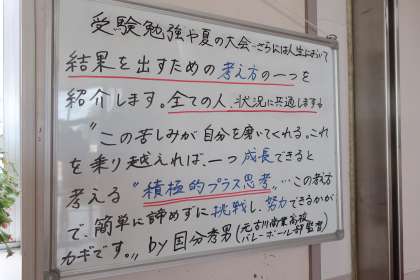 受験勉強や夏の大会…さらには人生において
結果を出すための考え方の一つを
紹介します。全ての人、状況に共通します。
〝この苦しみが自分を磨いてくれる。これ
を乗り越えれば、一つ成長できると
考える〝積極的プラス思考〟…この考え方
で、簡単に諦めずに挑戦し、努力できるかが
カギです。〟by国分秀男(元古川商業高校
バレーボール部監督)